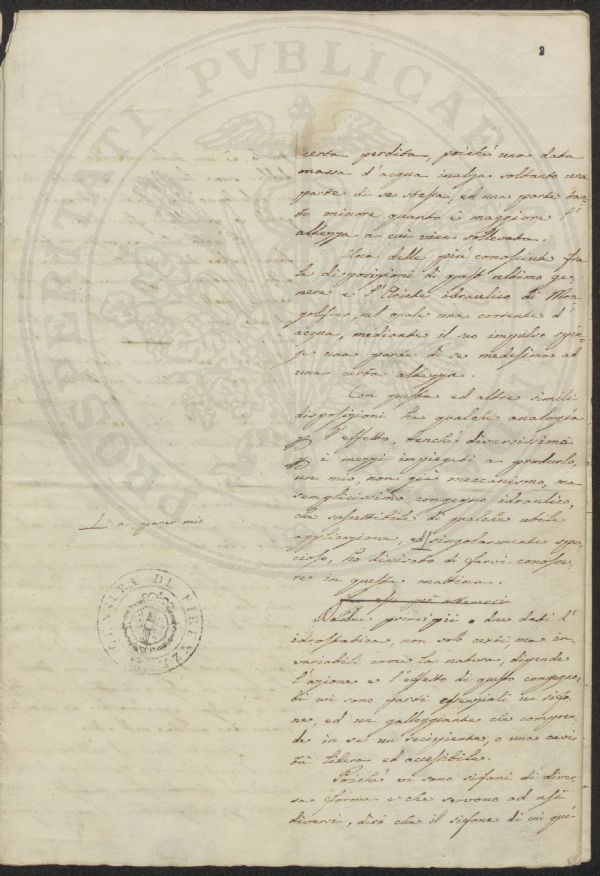 2
certa perdita, poiché una data
massa d'acqua inalza soltanto una
parte di se stessa, ed una parte tan-
to minore quanto è maggiore l'
altezza a cui vien sollevata.
Una delle più conosciute fra
le disposizioni di quest'ultimo ge-
nere è l'Ariete idraulico di Mon-
golfier, nel quale una corrente d'
acqua, mediante il suo impulso spin-
ge una parte di se medesima ad
una certa altezza.
Con questa ed altre simili
disposizioni ha qualche analogia
p l'effetto, benché diversissimo
p i mezzi impiegati a produrlo,
un mio, non già meccanismo, ma
semplicissimo congegno idraulico,
che suscettibile di qualche utile
applicazione, ed singolarmente spe-
cioso, ho divisato di farvi conosce-
re in questa mattina.
a parer mio
Da due principii o due dati d'
idrostatica, non solo certi, ma in-
variabili come la natura, dipende
l'azione e l'effetto di questo congegno,
di cui sono parti essenziali un sifo-
ne, ed un galleggiante che compren-
de in se un recipiente, o una cavi-
tà libera ed accessibile.
Poiché vi sono sifoni di diver-
sa forma e che servono ad usi
diversi, dirò che il sifone di cui quì
PROSPERITATI PVBLICAE